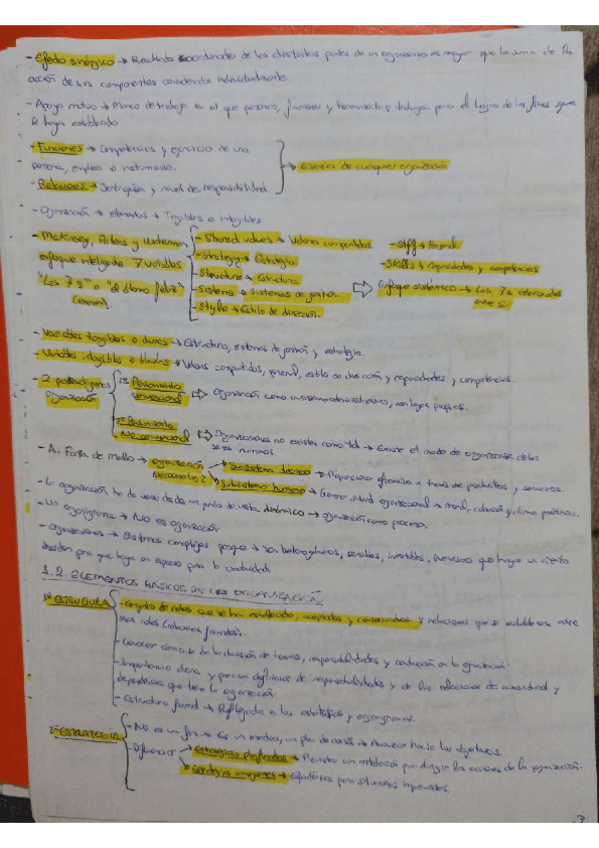 - Efecto sinérgico → Resultado coordinado de las distintas partes de un organismo es mayor que la suma de la
acción de sus componentes considerados individualmente.
- Apoyo mutuo → Marco de trabajo en el que personas, funciones y herramientas trabajan para el logro de los fines que
se hayan establecido
- Funciones → Competencias y ejercicio de una
persona, empleo o instrumento.
- Relaciones → Jerárquicas y nivel de responsabilidad.
→ Esencia de cualquier organización
- Organización → elementos → Tangibles e intangibles
- McKinsey, Peters y Waterman
enfoque inteligente 7 variables
"Las 7 s" o "átomo feliz"
- Shared values → Valores compartidos
- Strategy → Estrategia
- Structure → Estructura
- Systems → Sistemas de gestión
- Style → Estilo de dirección.
- Staff → Personal
- Skills → Capacidades y competencias
Enfoque sistémico → Las 7s relacionadas
entre sí
- Variables tangibles o duras → Estructura, sistemas de gestión y estrategia.
- Variables intangibles o blandas → Valores compartidos, personal, estilo de dirección y capacidades y competencias.
- 2 paradigmas
organización
1º Pensamiento
convencional ⇒ Organización como
2º Pensamiento
No convencional ⇒ Organizaciones no existen como tal → Existe el modo de organizarse de los
seres humanos.
- A. Forta de Mello → organización
necesita 2
subsistema técnico → Proporcionar eficiencia a través de productos y servicios.
subsistema humano → Generar salud organizacional → moral, cohesión y clima positivos.
- La organización ha de verse desde un punto de vista dinámico → organización como proceso.
- Un organigrama → No es organización
- Organizaciones → Sistemas complejos porque → son heterogéneos, sensibles, inestables. Necesario que haya un cierto
desorden para que haya un espacio para la creatividad
1.2. ELEMENTOS BÁSICOS DE LAS ORGANIZACIONES
1º ESTRUCTURA
- Conjunto de roles que se han establecido, aceptados y consensuados y relaciones que se establecen entre
esos roles (relaciones formales).
- Conocer cómo es la división de tareas, responsabilidades y coordinación en la organización.
- Importancia clara y precisa definición de responsabilidades y de las relaciones de autoridad y
dependencia que tiene la organización.
- Estructura formal → Reflejada en los estatutos y organigramas.
2º ESTRATEGIA
- No es un fin → Es un medio, un plan de acción → Avanzar hacia los objetivos.
- Diferenciar
estrategias planificadas → Necesita un para dirigir las acciones de la organización.
estrategias emergentes → Espontáneas para situaciones improvisadas.
3